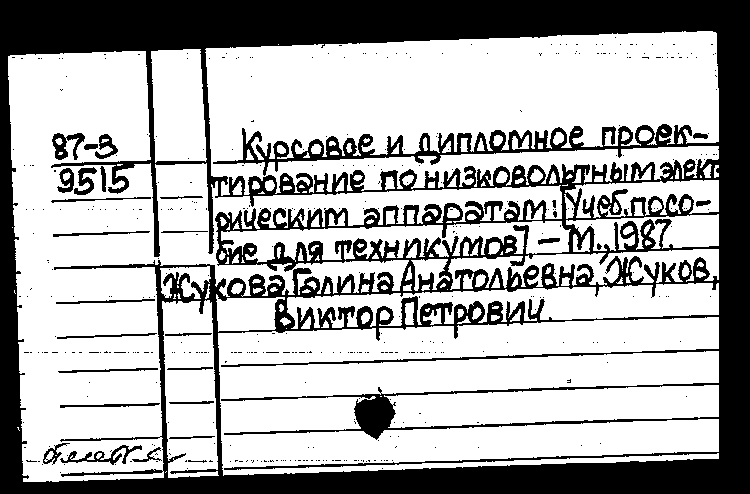 87-3
9515
Курсовое и дипломное проек-
тирование по низковольтным элект-
рическим аппаратам: [Учеб. посо-
бие для техникумов]. - М., 1987.
Жукова, Галина Анатольевна, Жуков,
Виктор Петрович.